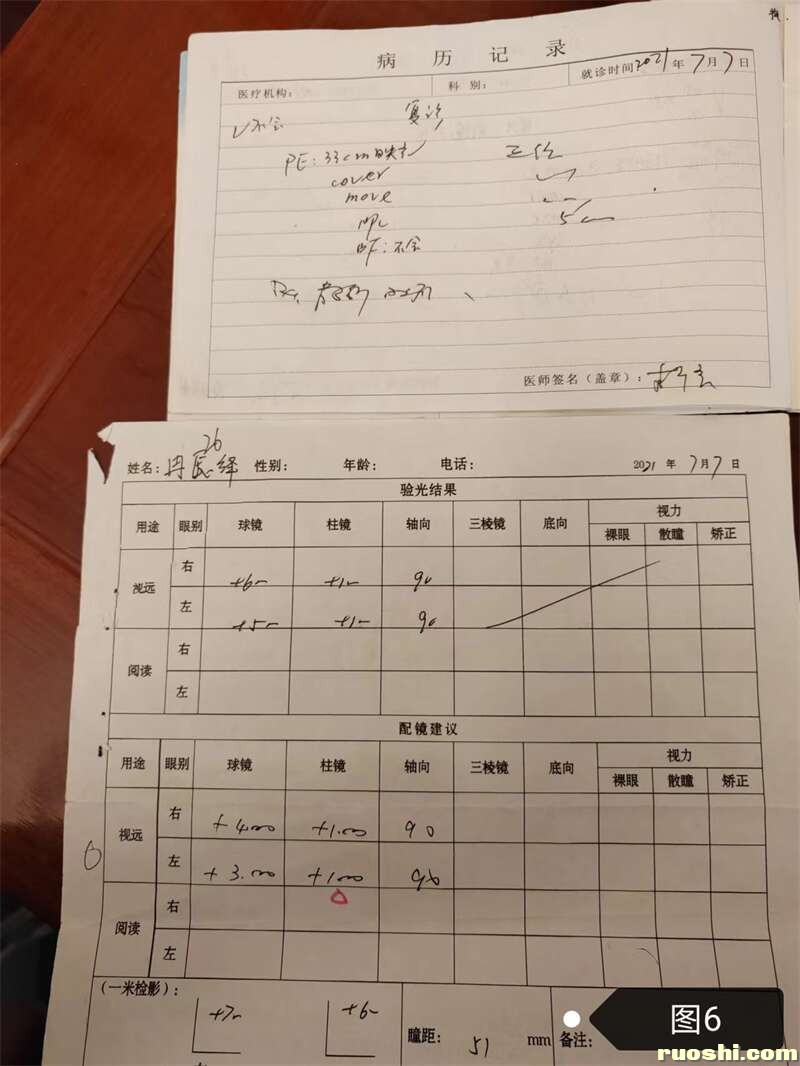 病 历 记 录
医疗机构: 科 别: 就诊时间 2021 年 7 月 7 日
V不会 复诊
PE: 33cm 正位
cover
move
5
BF: 不会
医师签名(盖章):
26
姓名: 性别: 年龄: 电话: 2021 年 7 月 7 日
验光结果
用途 眼别 球镜 柱镜 轴向 三棱镜 底向 视力
裸眼 散瞳 矫正
视远 右 +6 +1 90
左 +5 +1 90
阅读 右
左
配镜建议
用途 眼别 球镜 柱镜 轴向 三棱镜 底向 视力
裸眼 散瞳 矫正
视远 右 +4.00 +1.00 90
左 +3.00 +1.00 90
阅读 右
左
(一米检影): +7 +6 瞳距: 51 mm 备注:
图6
ruoshi.com